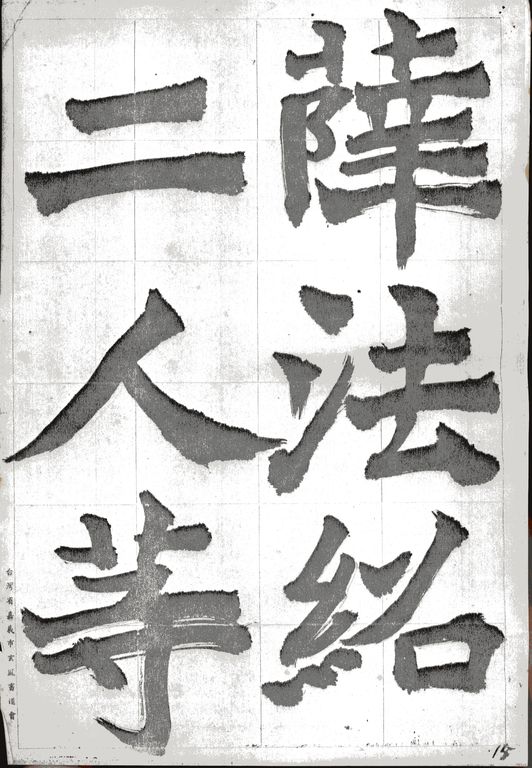 薛法紹
二人等
台灣省嘉義市玄風書道會